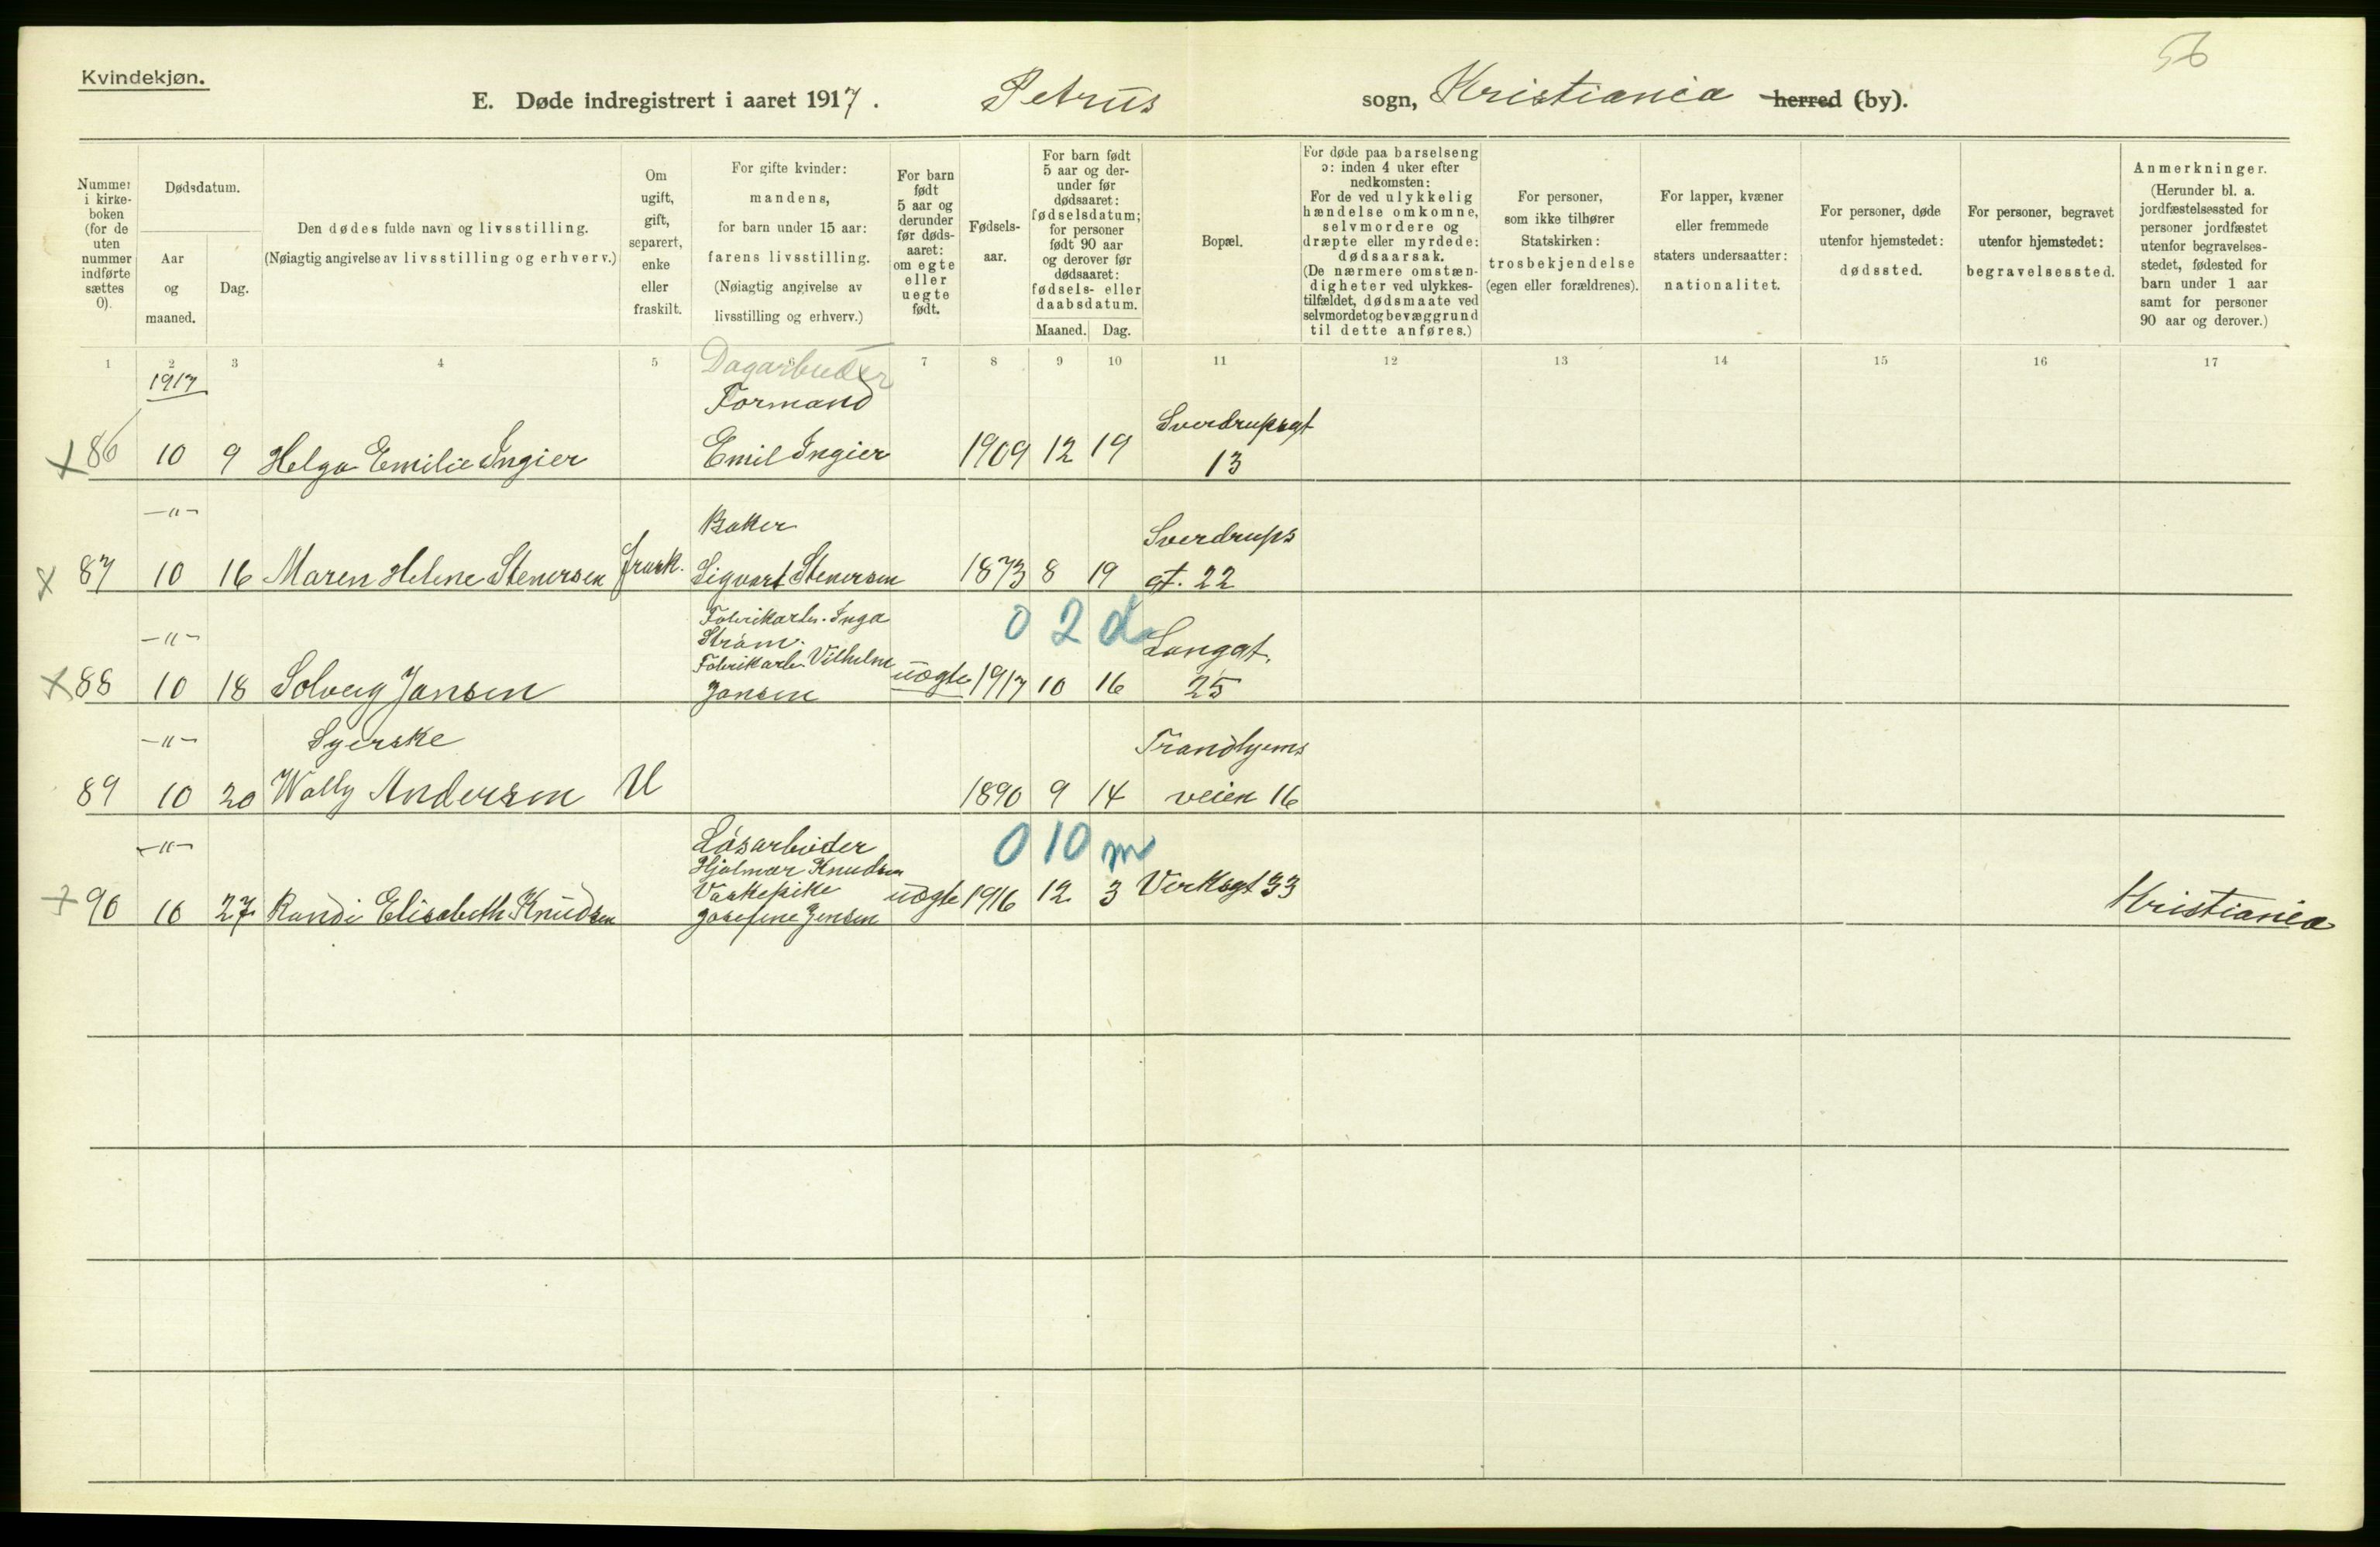 56
Kvindekjøn.
E. Døde indregistrert i aaret 1917. Petrus sogn, Kristiania herred (by).
Nummer i kirkeboken (for de uten nummer indførte sættes 0).
Dødsdatum.
Aar og maaned.
Dag.
Den dødes fulde navn og livsstilling.
(Nøiagtig angivelse av livsstilling og erhverv.)
Om ugift, gift, separert, enke eller fraskilt.
For gifte kvinder: mandens, for barn under 15 aar: farens livsstilling. (Nøiagtig angivelse av livsstilling og erhverv.)
For barn født 5 aar og derunder før dødsaaret: om egte eller uegte født.
Fødselsaar.
For barn født 5 aar og derunder før dødsaaret: fødselsdatum; for personer født 90 aar og derover før dødsaaret: fødsels- eller daabsdatum.
Maaned. Dag.
Bopæl.
For døde paa barselseng ɔ: inden 4 uker efter nedkomsten: For de ved ulykkelig hændelse omkomne, selvmordere og dræpte eller myrdede: dødsaarsak. (De nærmere omstændigheter ved ulykkestilfældet, dødsmaate ved selvmordet og bevæggrund til dette anføres.)
For personer, som ikke tilhører Statskirken: trosbekjendelse (egen eller forældrenes).
For lapper, kvæner eller fremmede staters undersaatter: nationalitet.
For personer, døde utenfor hjemstedet: dødssted.
For personer, begravet utenfor hjemstedet: begravelsessted.
Anmerkninger. (Herunder bl. a. jordfæstelsessted for personer jordfæstet utenfor begravelsesstedet, fødested for barn under 1 aar samt for personer 90 aar og derover.)
1 2 3 4 5 7 8 9 10 11 12 13 14 15 16 17
1917
Dagarbeider
Formand
Sverdrupsgt
86 10 9 Helga Emilie Ingier Emil Ingier 1909 12 19 13
—"— Baker
Sverdrups
87 10 16 Maren Helene Stenersen frask. Sigvart Stenersen 1873 8 19 gt. 22
Fabrikarb. Inga 0 2 d
—"— Strøm. Langgt.
Fabrikarb. Vilhelm
88 10 18 Solveig Jansen Jansen uegte 1917 10 16 25
—"— Syerske Trondhjems
89 10 20 Wally Andersen U 1890 9 14 veien 16
—"— Løsarbeider 0 10 m
Hjalmar Knudsen
Vaskepike
90 10 27 Randi Elisabeth Knudsen Josefine Jensen uegte 1916 12 3 Verksgt 33 Kristiania